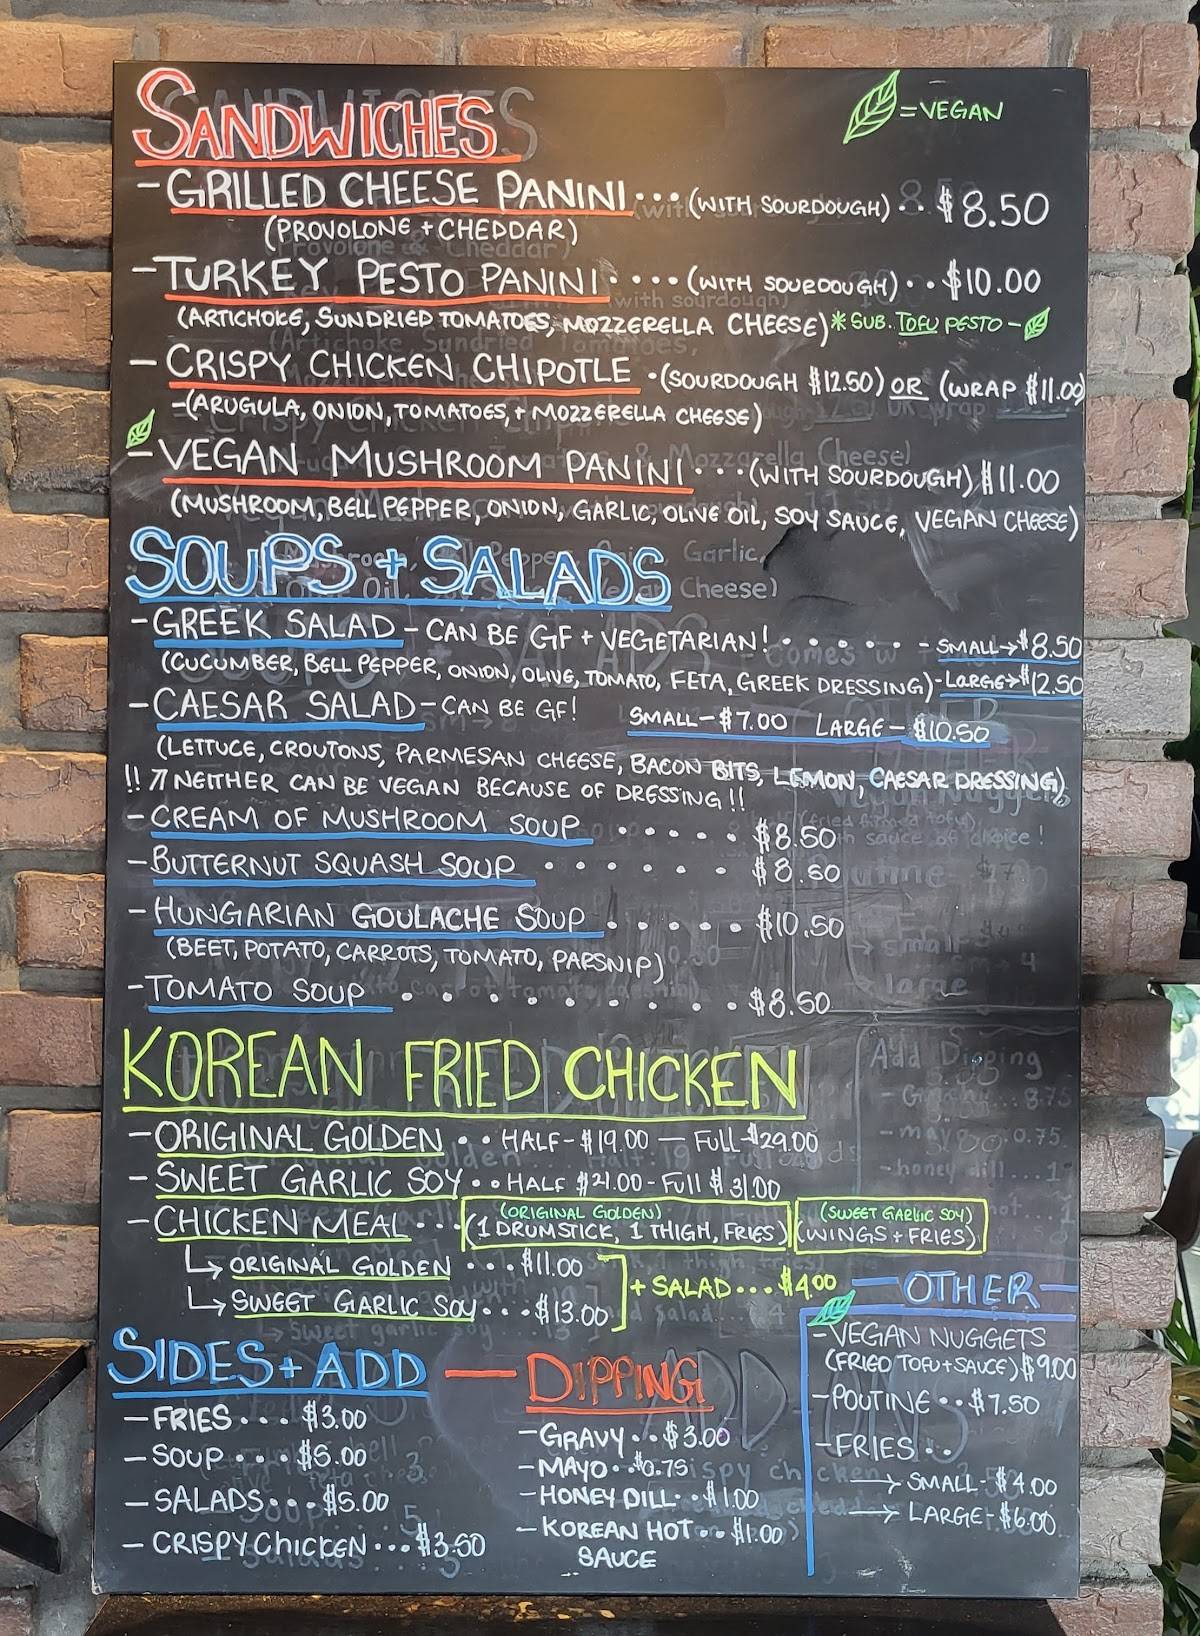 SANDWICHES
= VEGAN
- GRILLED CHEESE PANINI ... (WITH SOURDOUGH) .. $8.50
(PROVOLONE + CHEDDAR)
- TURKEY PESTO PANINI .... (WITH SOURDOUGH) .. $10.00
(ARTICHOKE, SUNDRIED TOMATOES, MOZZERELLA CHEESE) * SUB. TOFU PESTO -
- CRISPY CHICKEN CHIPOTLE . (SOURDOUGH $12.50) OR (WRAP $11.00)
-(ARUGULA, ONION, TOMATOES, + MOZZERELLA CHEESE)
- VEGAN MUSHROOM PANINI ... (WITH SOURDOUGH) $11.00
(MUSHROOM, BELL PEPPER, ONION, GARLIC, OLIVE OIL, SOY SAUCE, VEGAN CHEESE)
SOUPS + SALADS
- GREEK SALAD - CAN BE GF + VEGETARIAN! ..... - SMALL → $8.50
(CUCUMBER, BELL PEPPER, ONION, OLIVE, TOMATO, FETA, GREEK DRESSING) - LARGE → $12.50
- CAESAR SALAD - CAN BE GF! SMALL - $7.00 LARGE - $10.50
(LETTUCE, CROUTONS, PARMESAN CHEESE, BACON BITS, LEMON, CAESAR DRESSING)
!! ↗ NEITHER CAN BE VEGAN BECAUSE OF DRESSING !!
- CREAM OF MUSHROOM SOUP ..... $8.50
- BUTTERNUT SQUASH SOUP ...... $8.50
- HUNGARIAN GOULACHE SOUP ..... $10.50
(BEET, POTATO, CARROTS, TOMATO, PARSNIP)
- TOMATO SOUP .......... $8.50
KOREAN FRIED CHICKEN
- ORIGINAL GOLDEN .. HALF - $19.00 — FULL - $29.00
- SWEET GARLIC SOY .. HALF $21.00 - FULL $31.00
- CHICKEN MEAL ... (ORIGINAL GOLDEN) (1 DRUMSTICK, 1 THIGH, FRIES) (SWEET GARLIC SOY) (WINGS + FRIES)
↳ ORIGINAL GOLDEN ... $11.00
↳ SWEET GARLIC SOY ... $13.00
+ SALAD ... $4.00
SIDES + ADD
- FRIES ... $3.00
- SOUP .... $5.00
- SALADS ... $5.00
- CRISPY CHICKEN ... $3.50
DIPPING
- GRAVY .. $3.00
- MAYO .. $0.75
- HONEY DILL .. $1.00
- KOREAN HOT .. $1.00
SAUCE
OTHER
- VEGAN NUGGETS
(FRIED TOFU + SAUCE) $9.00
- POUTINE .. $7.50
- FRIES ..
→ SMALL - $4.00
→ LARGE - $6.00